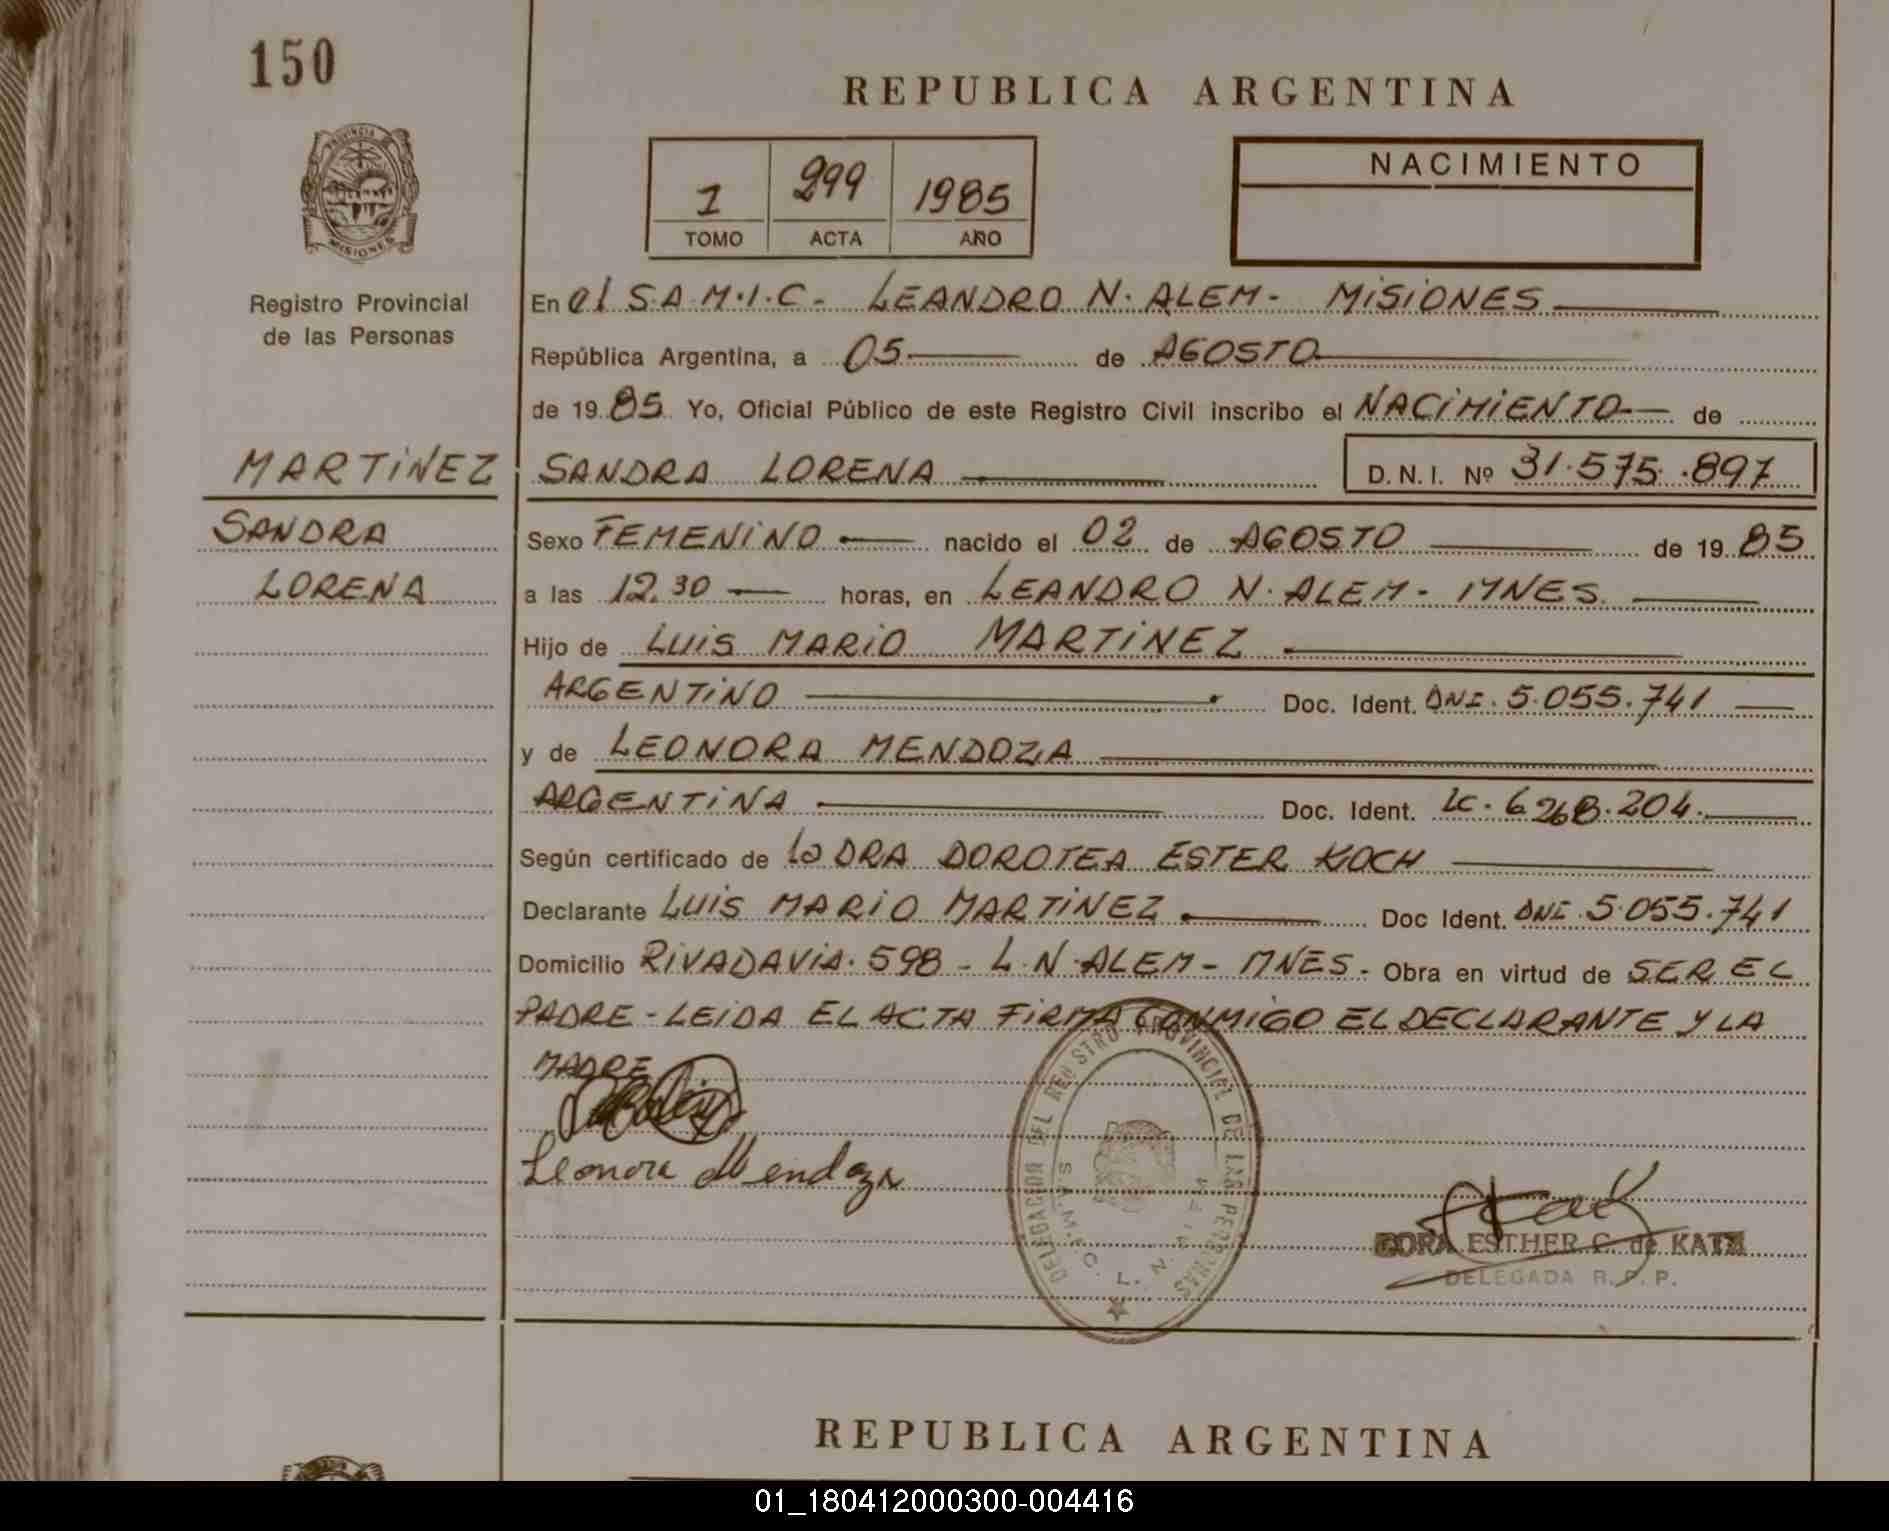 150
REPUBLICA ARGENTINA
PROVINCIA DE
MISIONES
1 299 1985
TOMO ACTA AÑO
NACIMIENTO
Registro Provincial
de las Personas
En el S.A.M.I.C. - LEANDRO N. ALEM - MISIONES
República Argentina, a 05 de AGOSTO
de 19 85 Yo, Oficial Público de este Registro Civil inscribo el NACIMIENTO de
MARTINEZ SANDRA LORENA D.N.I. Nº 31.575.897
SANDRA Sexo FEMENINO nacido el 02 de AGOSTO de 19 85
LORENA a las 12.30 horas, en LEANDRO N. ALEM - MNES.
Hijo de LUIS MARIO MARTINEZ
ARGENTINO Doc. Ident. DNI. 5.055.741
y de LEONORA MENDOZA
ARGENTINA Doc. Ident. LC. 6.268.204.
Según certificado de la DRA DOROTEA ESTER KOCH
Declarante LUIS MARIO MARTINEZ Doc Ident. DNI. 5.055.741
Domicilio RIVADAVIA. 598 - L.N. ALEM - MNES - Obra en virtud de SER EL
PADRE - LEIDA EL ACTA FIRMA CONMIGO EL DECLARANTE Y LA
MADRE
Leonora Mendoza
DELEGACION DEL REGISTRO PROVINCIAL DE LAS PERSONAS
S.A.M.I.C. L. N. ALEM
DORA ESTHER C. de KATZ
DELEGADA R. P. P.
REPUBLICA ARGENTINA
01_180412000300-004416